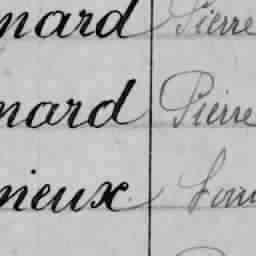 nard Pierre
nard Pierre
nieux Lou